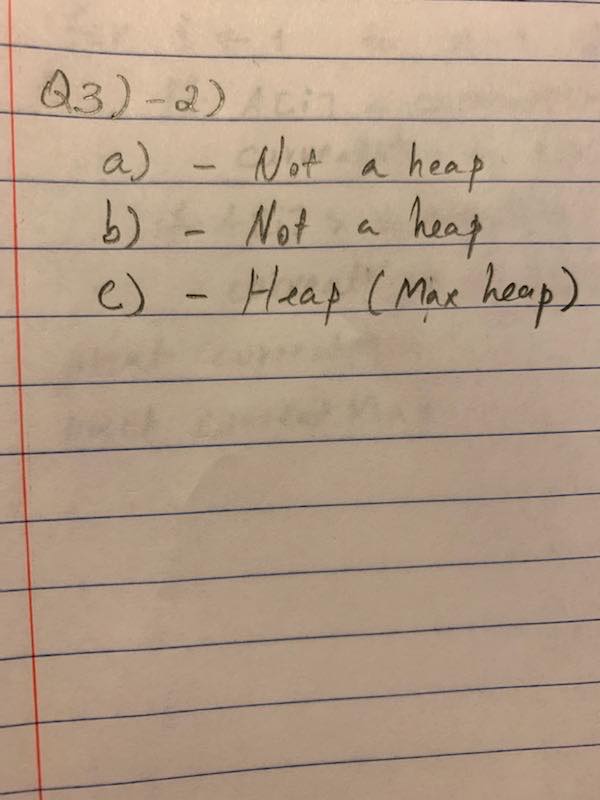 Q3) - 2)
a) - Not a heap
b) - Not a heap
c) - Heap (Max heap)